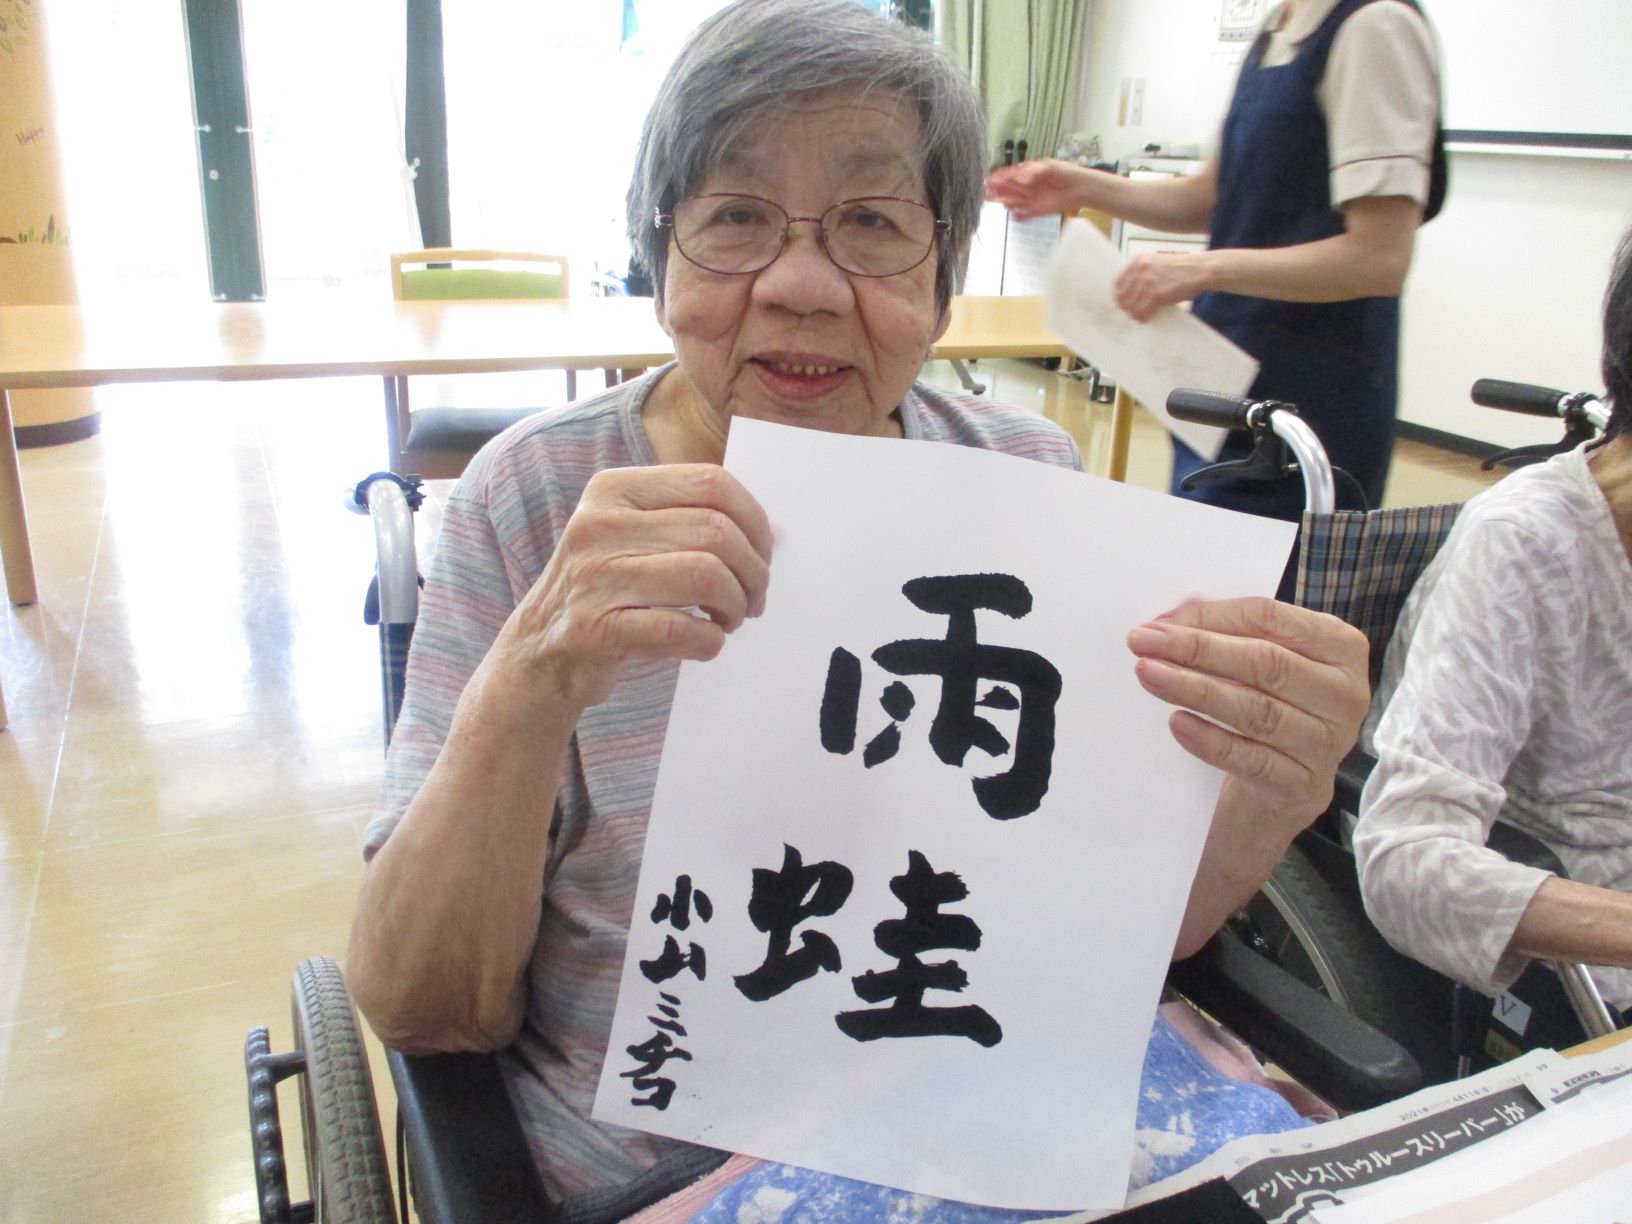 雨
蛙
小山三千コ
マットレス「トゥルースリーパー」が